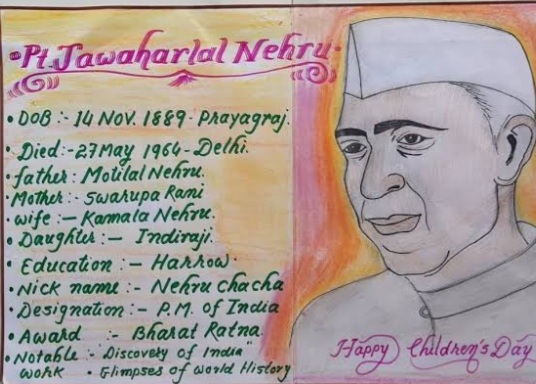 Pt. Jawaharlal Nehru
• DOB :- 14 NOV. 1889 - Prayagraj.
• Died:- 27 May 1964 - Delhi.
• father : Motilal Nehru.
• Mother :- Swarupa Rani
• wife :- Kamala Nehru.
• Daughter :- Indiraji.
• Education :- Harrow.
• Nick name :- Nehru Chacha
• Designation :- P.M. of India
• Award :- Bharat Ratna.
• Notable :- "Discovery of India"
work • Glimpses of world History
Happy Children's Day